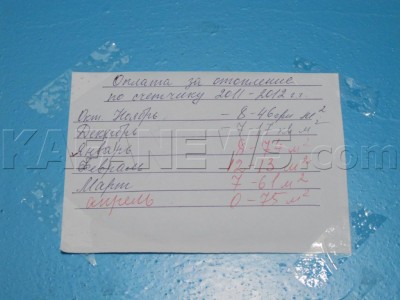 Оплата за отопление
по счетчику 2011-2012 гг
Окт Ноябрь - 8-46грн м²
Декабрь
Январь
Февраль 12-13 м²
Март 7-61 м²
апрель 0-75 м²